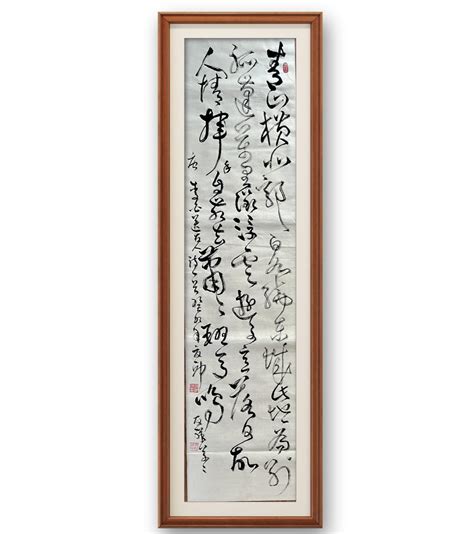 青山横北郭白水繞东城此地一为别
孤蓬萬里征浮雲遊子意落日故
人情揮手自茲去蕭蕭班馬鳴
唐李白送友人诗一首